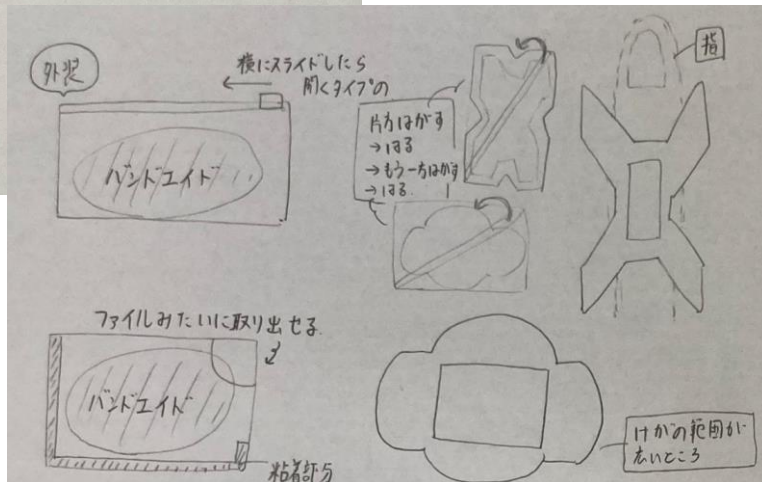 外装
横にスライドしたら
開くタイプの
バンドエイド
片方はがす
→はる
→もう一方はがす
→はる
指
ファイルみたいに取り出せる
バンドエイド
粘着部分
けがの範囲が
広いところ